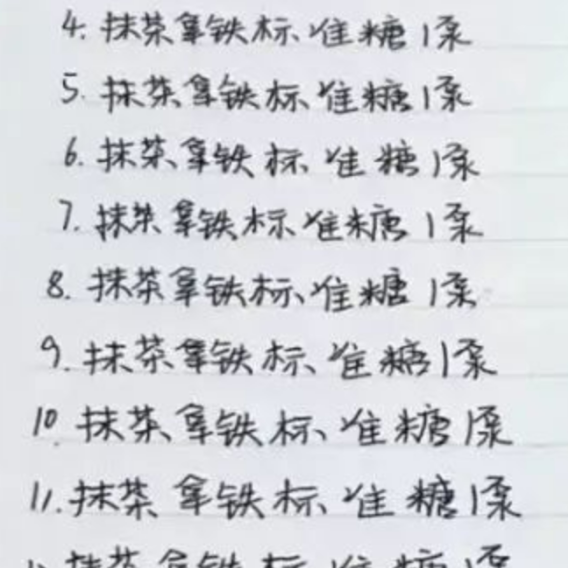 4. 抹茶拿铁标准糖1泵
5. 抹茶拿铁标准糖1泵
6. 抹茶拿铁标准糖1泵
7. 抹茶拿铁标准糖1泵
8. 抹茶拿铁标准糖1泵
9. 抹茶拿铁标准糖1泵
10. 抹茶拿铁标准糖1泵
11. 抹茶拿铁标准糖1泵
抹茶拿铁标准糖1泵